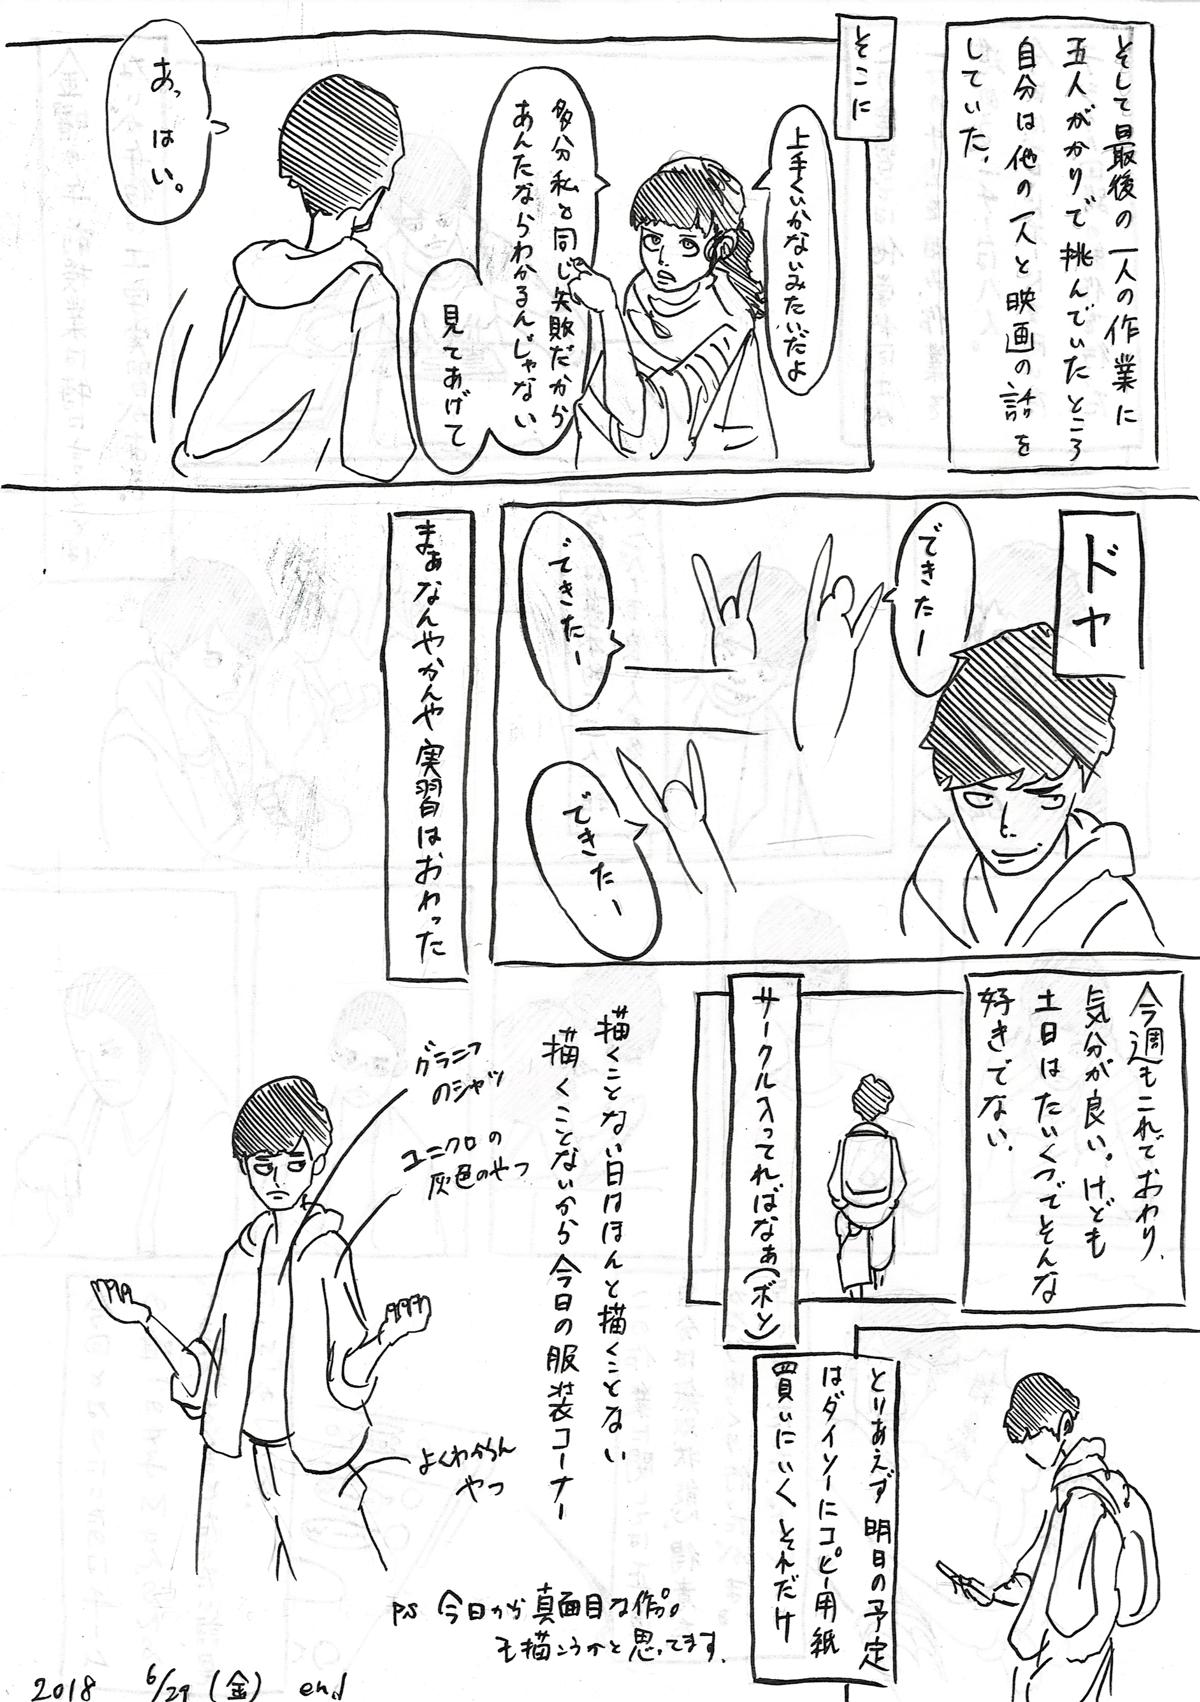 そして最後の一人の作業に
五人がかりで挑んでいたところ
自分は他の一人と映画の話を
していた。
そこに
上手くいかないみたいだよ
多分私と同じ失敗だから
あんたならわかるんじゃない
見てあげて
あっ はい。
ドヤ
できたー
できたー
できたー
まぁなんやかんや実習はおわった
今週もこれでおわり、
気分が良い。けども
土日はたいくつでそんな
好きでない。
サークル入ってればなぁ(ボソ)
とりあえず明日の予定
はダイソーにコピー用紙
買いにいく それだけ
描くことない日はほんと描くことない
描くことないから今日の服装コーナー
グラニフ
のシャツ
ユニクロの
灰色のやつ
よくわからん
やつ
PS 今日から真面目な作品
も描こうかと思ってます。
2018 6/29 (金) end